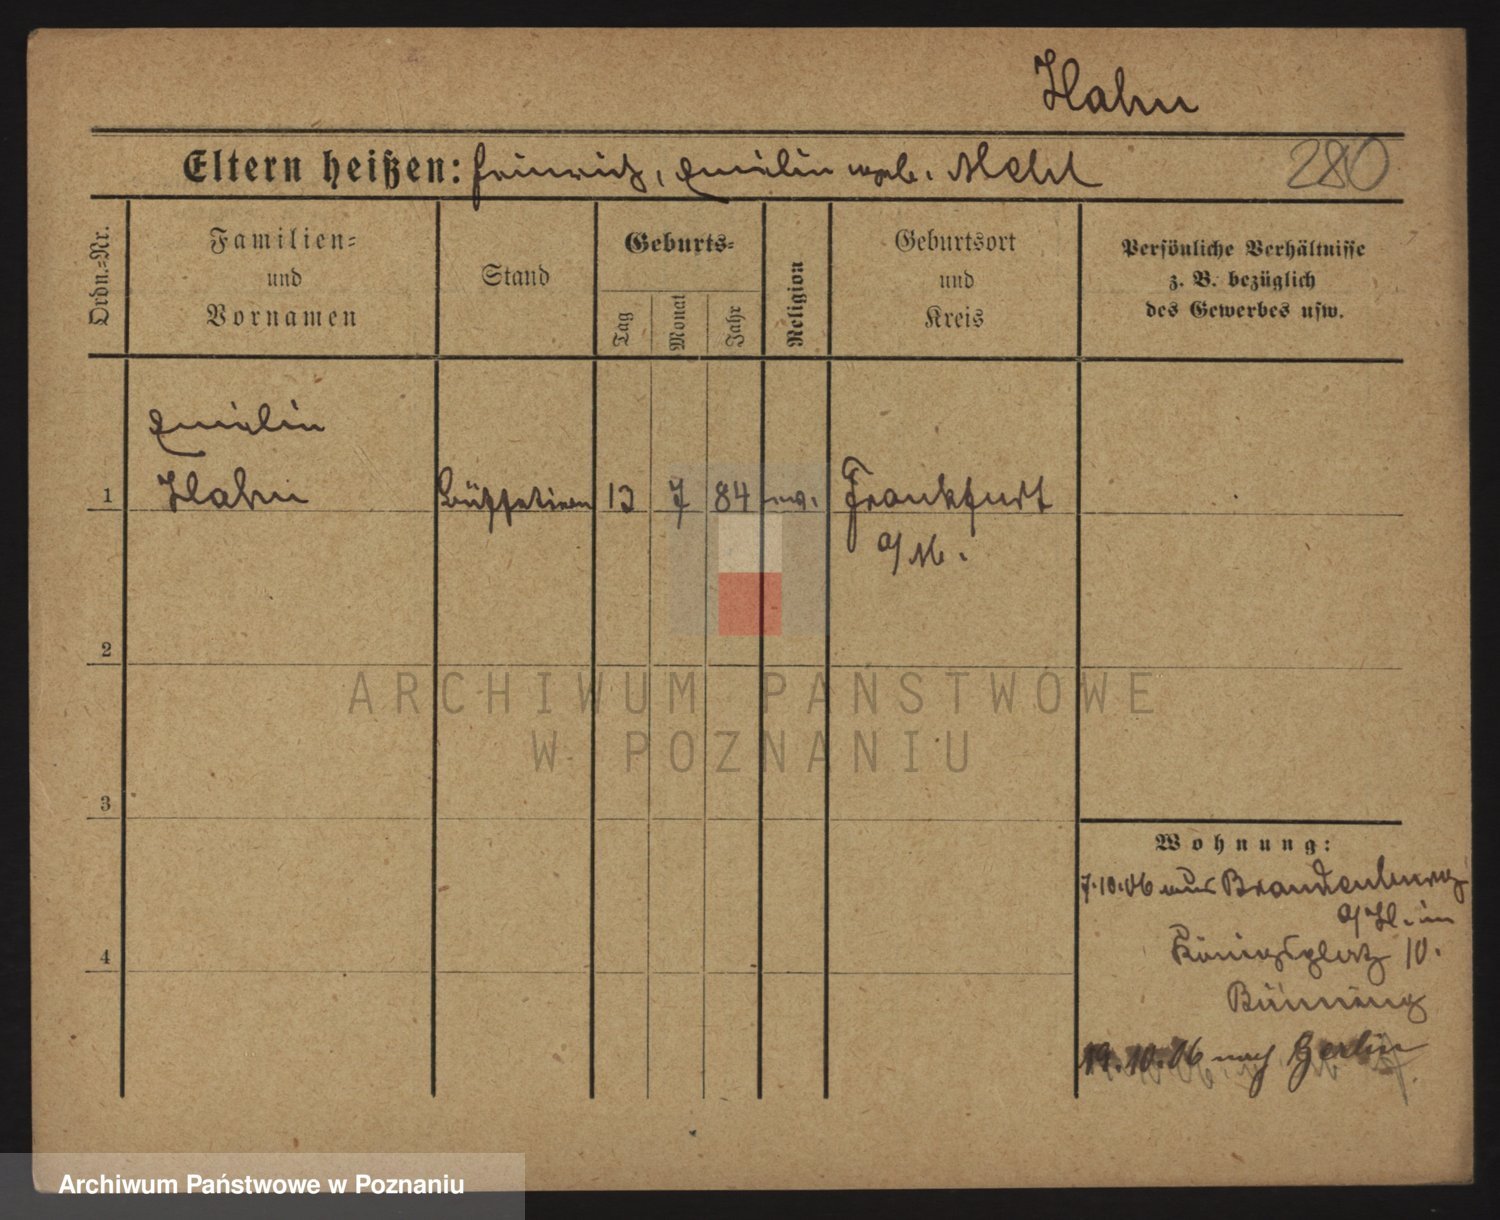 Hahn
Eltern heißen: Heinrich, Emilie geb. Mehl
280
Ordn.=Nr.
Familien=
und
Vornamen
Stand
Geburts=
Tag
Monat
Jahr
Religion
Geburtsort
und
Kreis
Persönliche Verhältnisse
z. B. bezüglich
des Gewerbes usw.
Emilie
1 Hahn Büffetieren 13 7 84 ev. Frankfurt
a/M.
2
3
4
Wohnung:
7.10.06 aus Brandenburg
a/H. in
Königsplatz 10.
Bünning
19.10.06 nach Berlin
ARCHIWUM PAŃSTWOWE
W POZNANIU
Archiwum Państwowe w Poznaniu